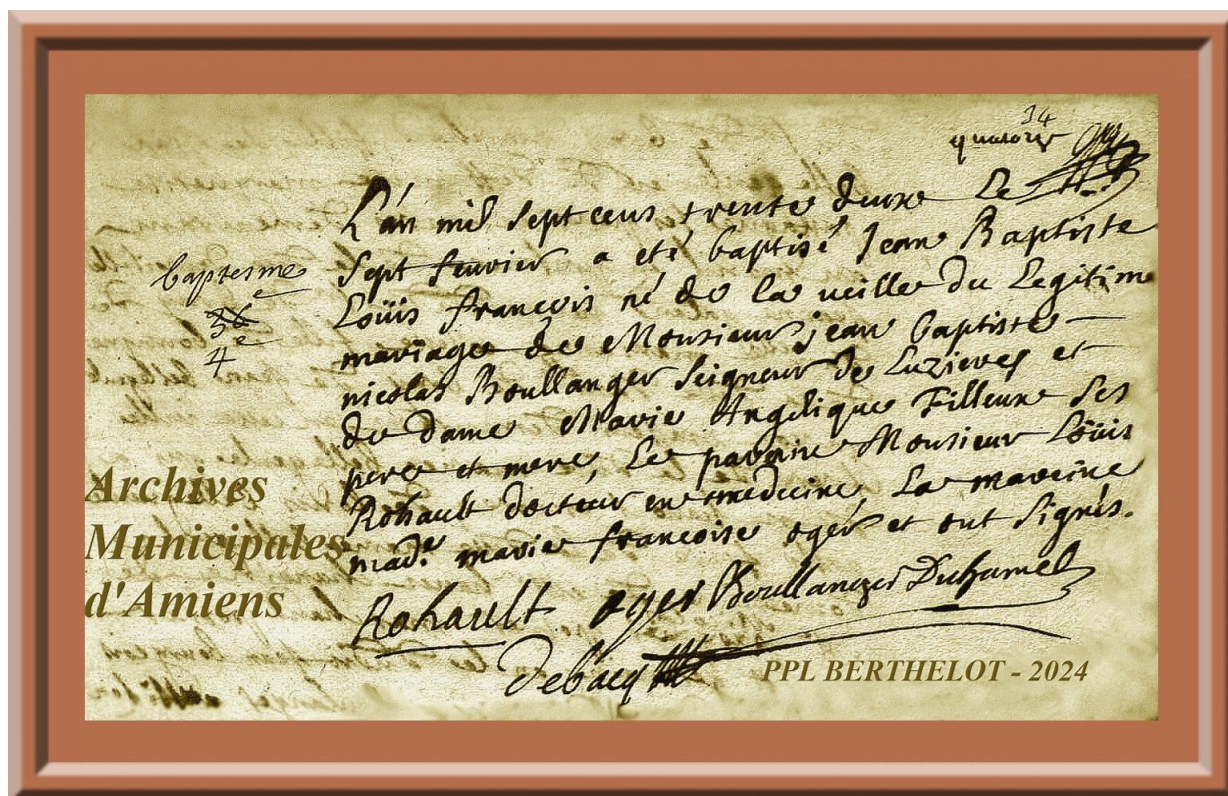 34
quatorze
L'an mil sept cens trente deuxe Le
sept feuvrier a eté baptisé Jean Baptiste
Loüis francois né de la ueille du Legitime
mariage de Monsieur jean baptiste
nicolas Boullanger seigneur de Luzieres et
de dame Marie Angelique Filleux ses
pere et mere, Le paraine Monsieur Loüis
Rohault docteur en medecine, La mareine
mad.e marie francoise oger et ont signés.
baptesme
36
4e
Rohault oger Boullanger Duhamel
Debacq
Archives
Municipales
d'Amiens
PPL BERTHELOT - 2024